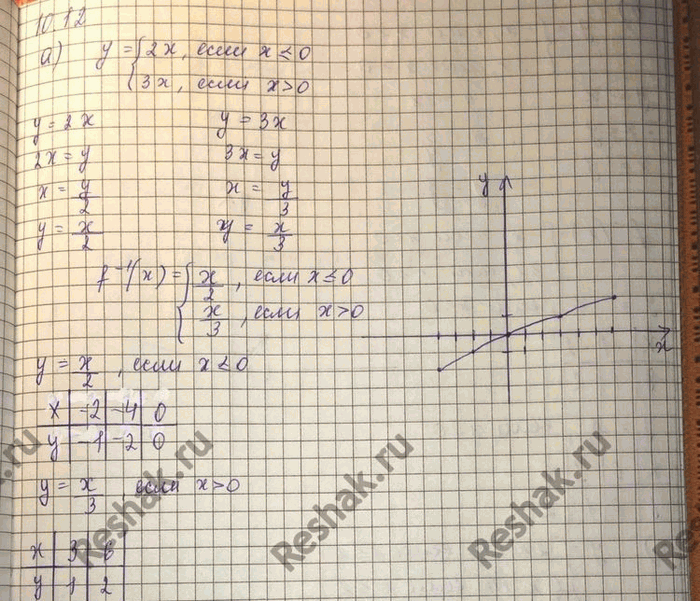 10.12
а) y = { 2x, если x ≤ 0
3x, если x > 0
y = 2x    y = 3x
2x = y    3x = y
x = y/2    x = y/3
y = x/2    y = x/3
f⁻¹(x) = { x/2, если x ≤ 0
x/3, если x > 0
y = x/2, если x ≤ 0
x | -2 | -4 | 0
y | -1 | -2 | 0
y = x/3 если x > 0
x | 3 | 6
y | 1 | 2
y
x
Reshak.ru
Reshak.ru
Reshak.ru